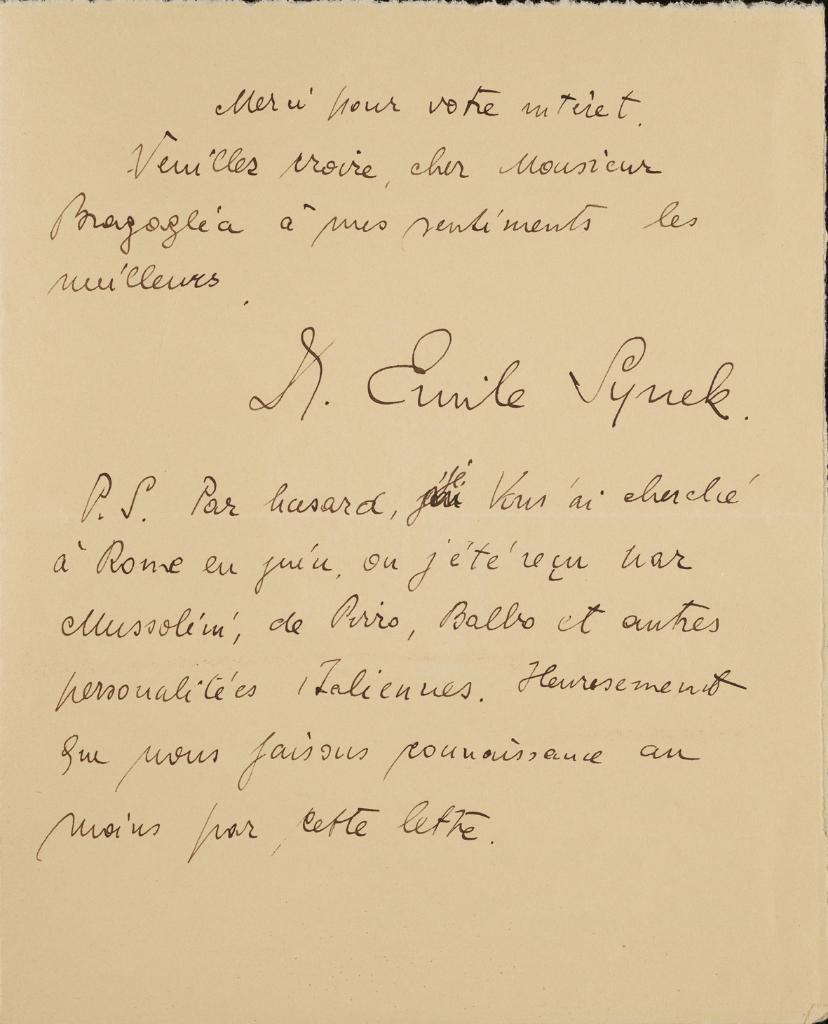 Merci pour votre intéret.
Veuillez croire, cher Monsieur
Bragogléa à mes sentiments les
meilleurs.
D. Emile Synek.
P.S. Par hasard, je Vous ai cherché
à Rome en juin, ou j'été reçu par
Mussolini, de Pirro, Balbo et autres
personalitées Italiennes. Heuresement
que nous faisons connaissance au
moins par cette lettre.